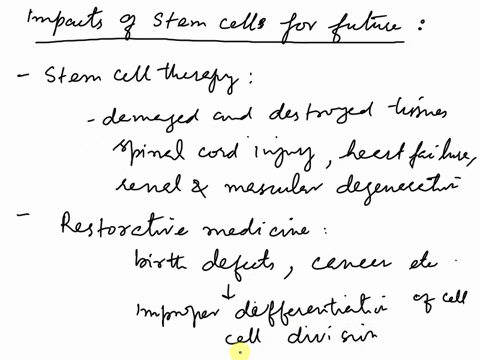 Impacts of Stem cells for future :
- Stem cell therapy :
- damaged and destroyed tissues
spinal cord injury, heart failure,
renal & mascular degeneration
- Restorative medicine :
birth defects, cancer etc.
↓
improper differentiation of cell
cell division